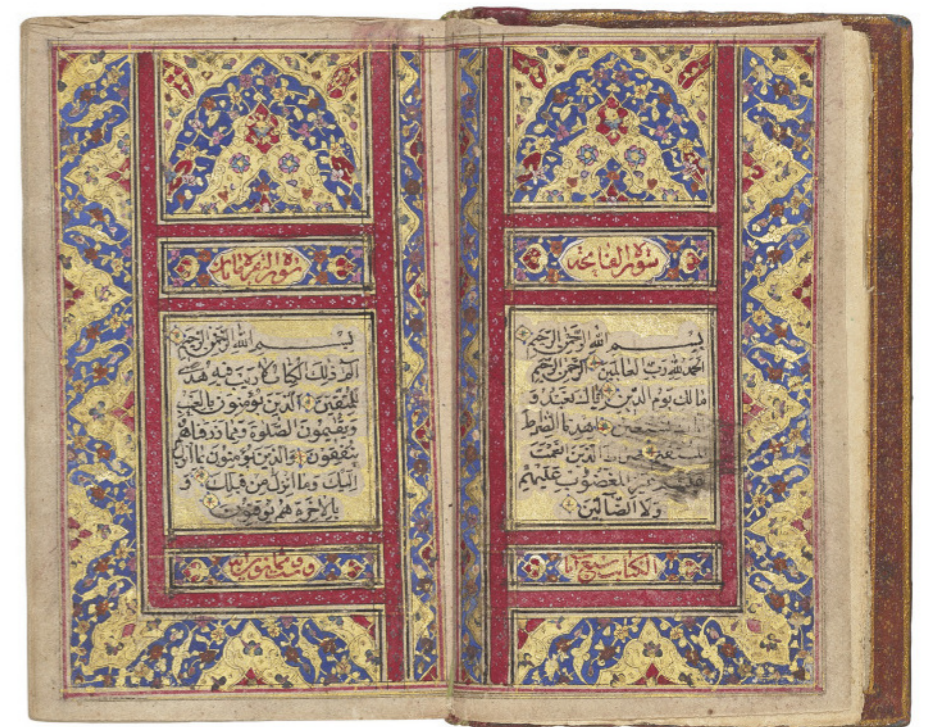 سورة الفاتحة
بسم الله الرحمن الرحيم
الحمد لله رب العالمين الرحمن الرحيم
مالك يوم الدين اياك نعبد و
اياك نستعين اهدنا الصراط
المستقيم صراط الذين انعمت
عليهم غير المغضوب عليهم
ولا الضالين
الكتاب سبع
سورة البقرة
بسم الله الرحمن الرحيم
الم ذلك الكتاب لا ريب فيه هدى
للمتقين الذين يؤمنون بالغيب
ويقيمون الصلوة ومما رزقناهم
ينفقون والذين يؤمنون بما انزل
اليك وما انزل من قبلك و
بالاخرة هم يوقنون